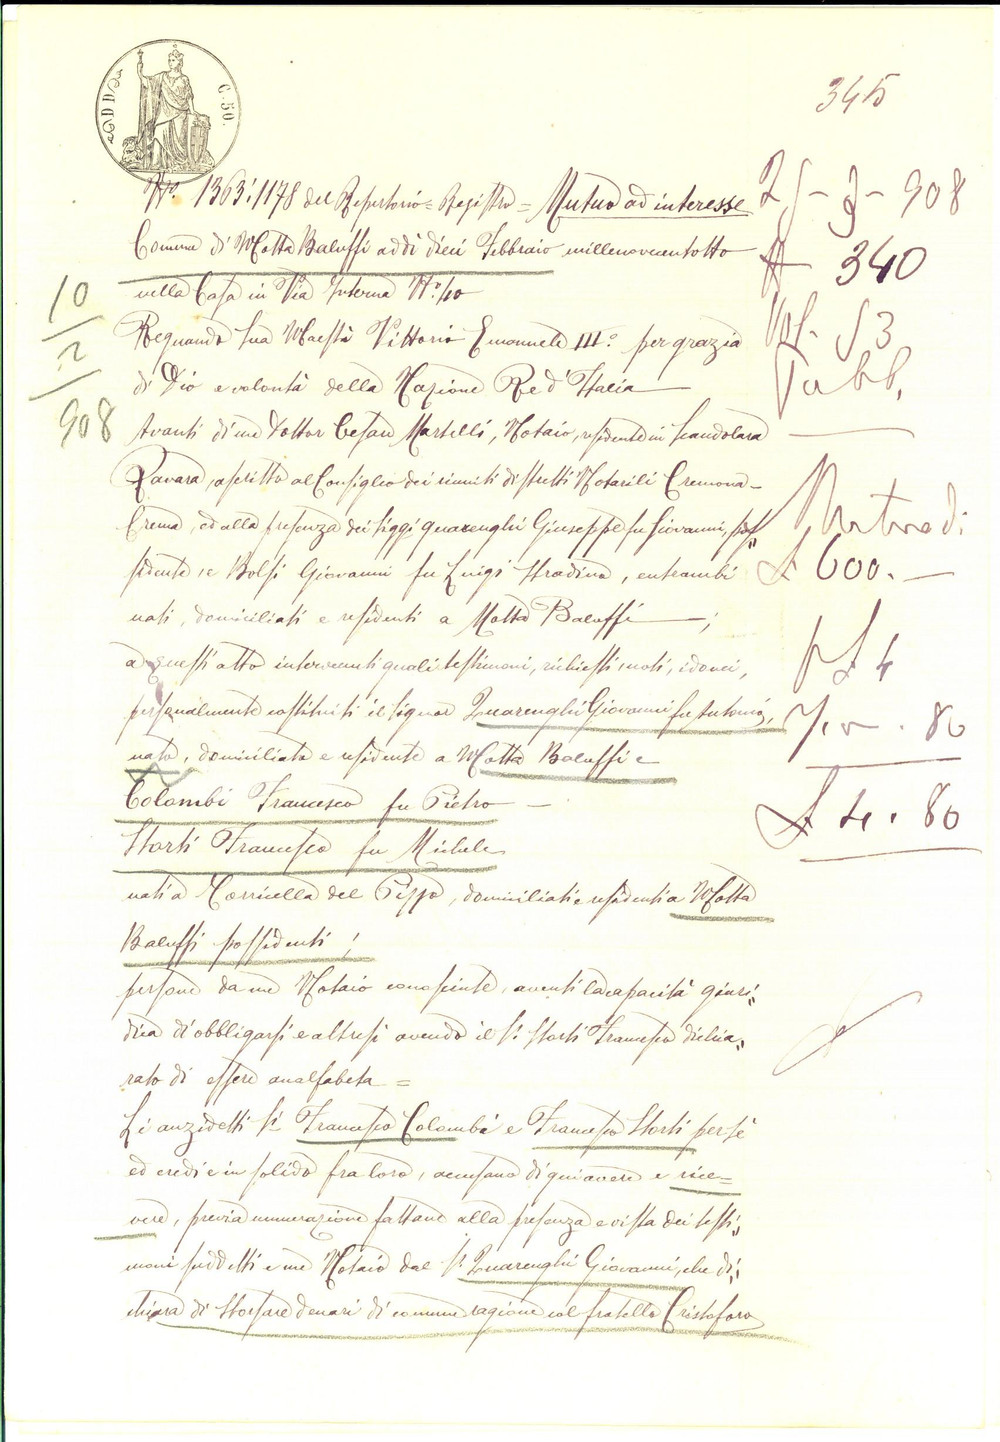 C. 50.
345
N.° 1363.1178 del Repertorio = Registro = Mutuo ad interesse
Comune di Motta Baluffi addì dieci Febbraio millenovecentotto
nella Casa in Via Interna N.° 10
Regnando Sua Maestà Vittorio Emanuele III.° per grazia
di Dio e volontà della Nazione Re d'Italia
Avanti di me Dottor Cesare Martelli, Notaio, residente in Scandolara
Ravara, ascritto al Consiglio dei riuniti distretti Notarili Cremona-
Crema, ed alla presenza dei Sigg.i Quarenghi Giuseppe fu Giovanni, pos-
sidente, e Bolsi Giovanni fu Luigi, entrambi
nati, domiciliati e residenti a Motta Baluffi ;
a questi atto intervenuti quali testimoni, richiesti, noti, idonei,
personalmente costituiti il Signor Quarenghi Giovanni fu Antonio,
nato, domiciliato e residente a Motta Baluffi e
Colombi Francesco fu Pietro -
Storti Francesco fu Michele
nati a Torricella del Pizzo, domiciliati e residenti a Motta
Baluffi possidenti ;
persone da me Notaio conosciute, aventi la capacità giuri=
dica di obbligarsi e altresì avendo il S. Storti Francesco dichia=
rato di essere analfabeta =
Li anzidetti S.i Francesco Colombi e Francesco Storti per sè
ed eredi e in solido fra loro, accusano di qui avere e rice=
vere, previa numerazione fattane alla presenza e vista dei testi=
moni suddetti e me Notaio dal S. Quarenghi Giovanni, che di=
chiara di sborsare denari di comune ragione col fratello Cristoforo
10
2
908
25 - 3 - 908
340
Vol. 53
Pubb.
Mutuo di
£ 600. -
4
. 80
£ 4. 80